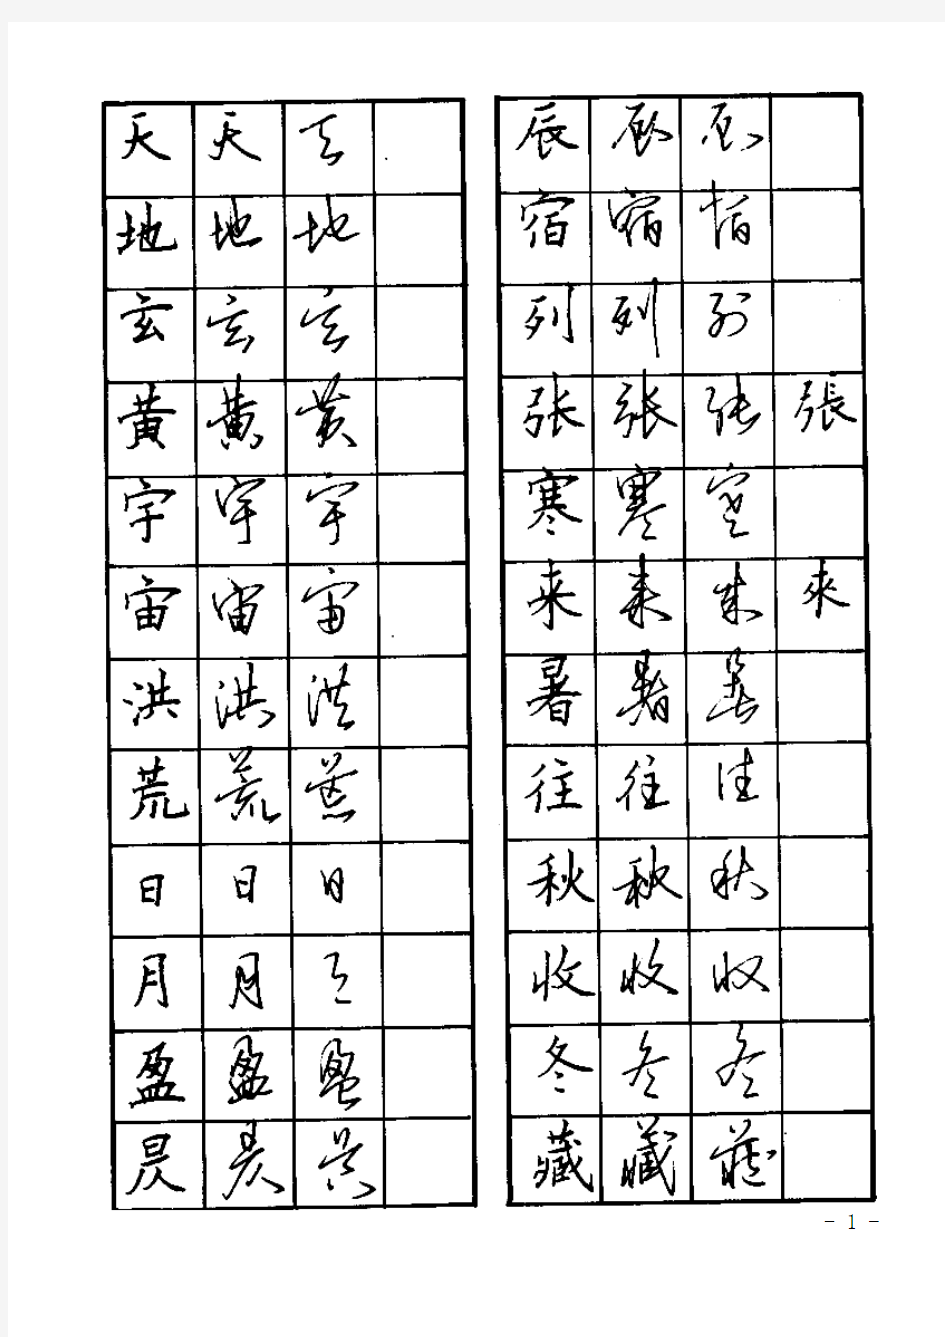 天 天 天
地 地 地
玄 玄 玄
黄 黄 黄
宇 宇 宇
宙 宙 宙
洪 洪 洪
荒 荒 荒
日 日 日
月 月 月
盈 盈 盈
昃 昃 昃
辰 辰 辰
宿 宿 宿
列 列 列
张 张 张 張
寒 寒 寒
来 来 来 來
暑 暑 暑
往 往 往
秋 秋 秋
收 收 收
冬 冬 冬
藏 藏 藏
- 1 -